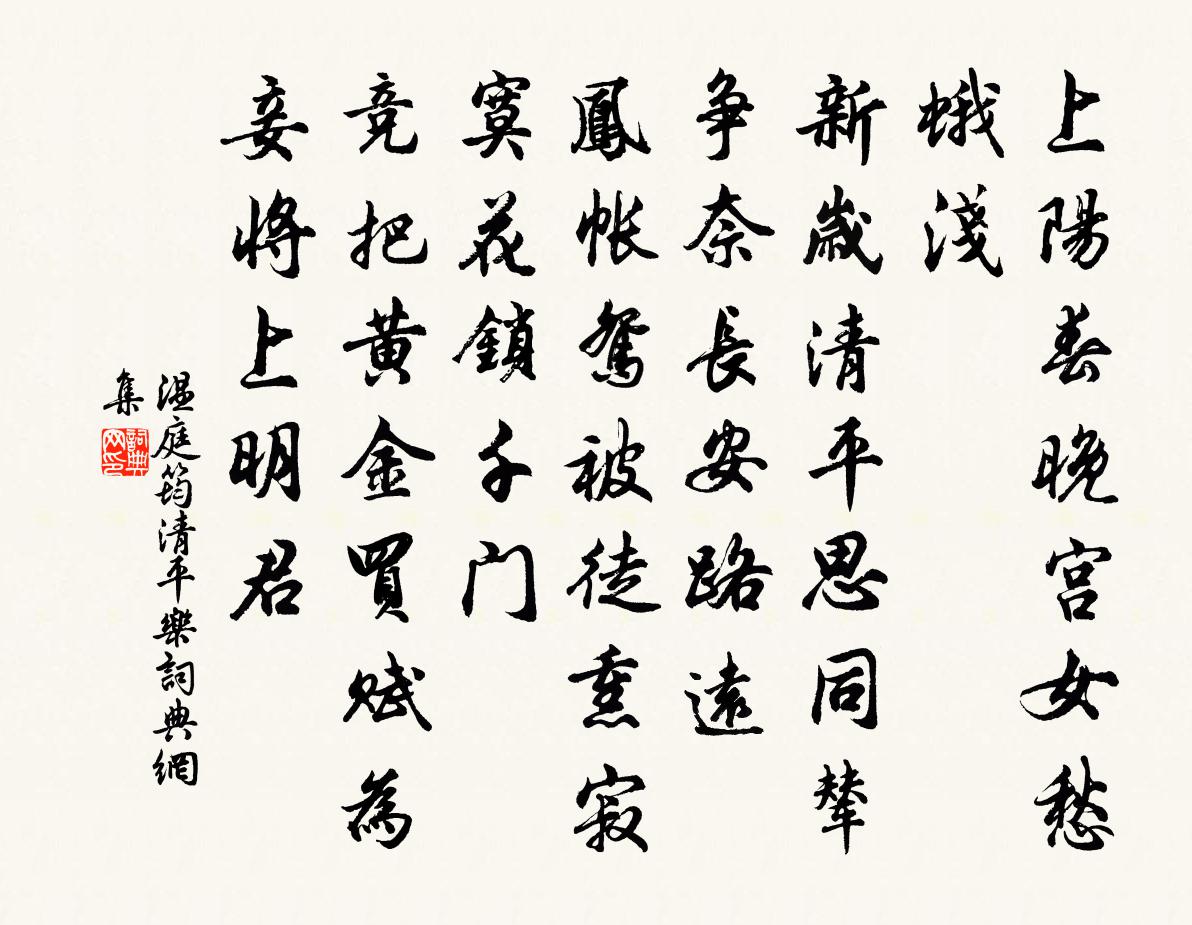 上陽春晚宮女愁
蛾淺
新歲清平思同輦
爭奈長安路遠
鳳帳鴛被徒熏寂
寞花鎖千门
竞把黄金買赋為
妾將上明君
温庭筠清平樂詞典網
集
詞典
网印